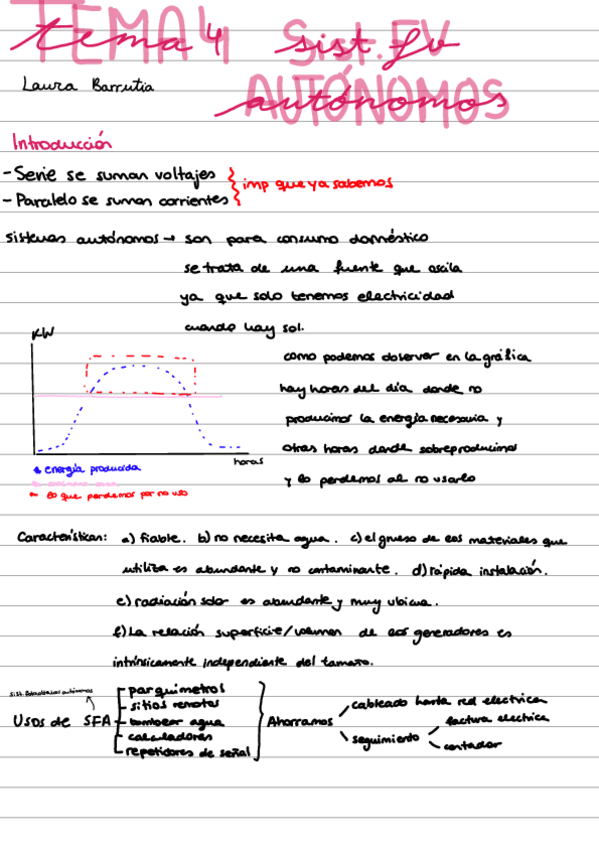 TEMA 4 Sist. FV
tema 4 sist. fv
Laura Barrutia
AUTÓNOMOS
autónomos
Introducción
- Serie se suman voltajes
- Paralelo se suman corrientes
imp que ya sabemos
sistemas autónomos → son para consumo doméstico
se trata de una fuente que oscila
ya que solo tenemos electricidad
cuando hay sol.
KW
como podemos observar en la gráfica
hay horas del día donde no
producimos la energía necesaria y
otras horas donde sobreproducimos
y lo perdemos al no usarlo
horas
energía producida
lo que perdemos por no uso
Características: a) fiable. b) no necesita agua. c) el grueso de los materiales que
utiliza es abundante y no contaminante. d) rápida instalación.
e) radiación solar es abundante y muy ubicua.
f) La relación superficie/volumen de los generadores es
intrínsicamente independiente del tamaño.
sist. fotovoltaicos autónomos
Usos de SFA
- parquímetros
- sitios remotos
- bombear agua
- calculadores
- repetidores de señal
Ahorramos
cableado hasta red electrica
seguimiento
factura electrica
contador